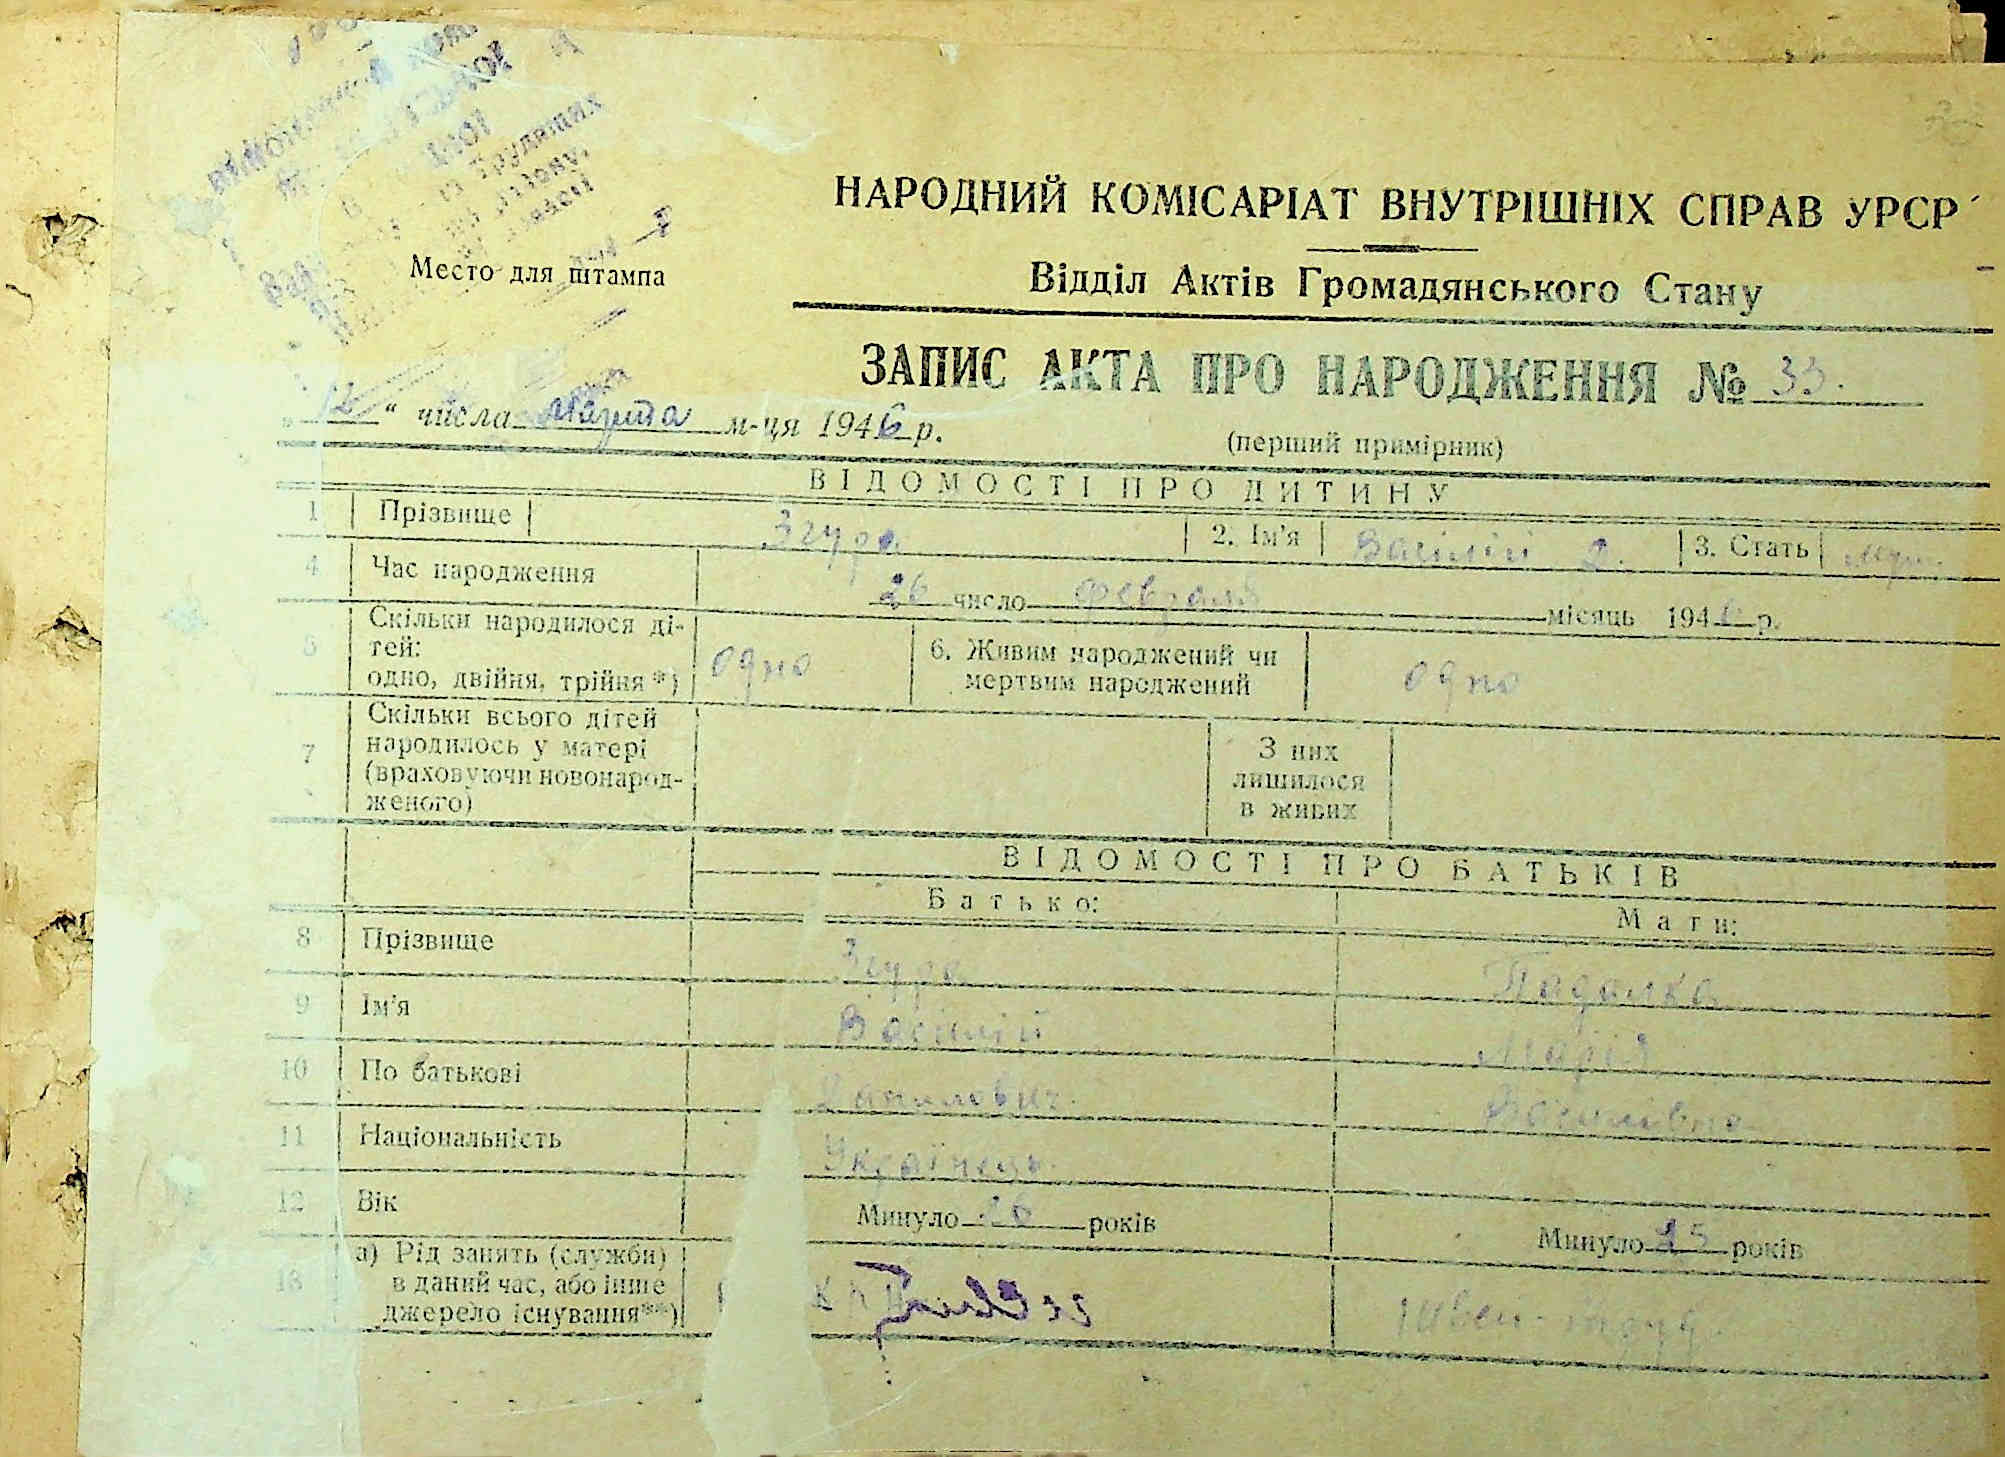 трудящих
НАРОДНИЙ КОМІСАРІАТ ВНУТРІШНІХ СПРАВ УРСР
Место для штампа
Відділ Актів Громадянського Стану
ЗАПИС АКТА ПРО НАРОДЖЕННЯ № 33.
„12“ числа Марта м-ця 1946 р.
(перший примірник)
ВІДОМОСТІ ПРО ДИТИНУ
1 Прізвище Згура 2. Ім'я Васілій 3. Стать муж.
4 Час народження 26 число Февраля місяць 1946 р.
5 Скільки народилося ді-
тей:
одно, двійня, трійня*) Одно 6. Живим народжений чи
мертвим народжений Одно
7 Скільки всього дітей
народилось у матері
(враховуючи новонарод-
женого)
З них
лишилося
в живих
ВІДОМОСТІ ПРО БАТЬКІВ
Батько: Мати:
8 Прізвище Згура Падалка
9 Ім'я Васілій Марія
10 По батькові Данилович Василівна
11 Національність Українець.
12 Вік Минуло 26 років Минуло 25 років
13 а) Рід занять (служби)
в даний час, або інше
джерело існування**)